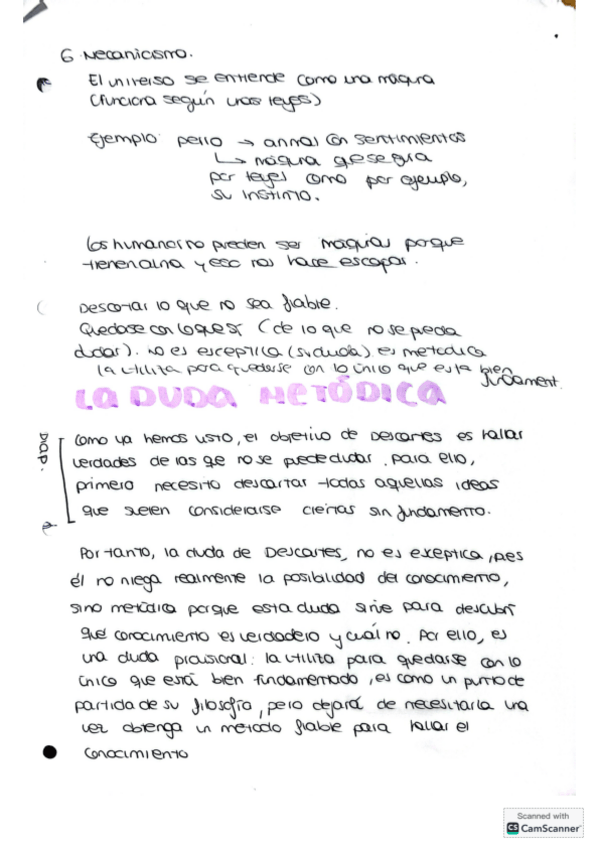 6 Mecanicismo.
El universo se entiende como una máquina
(funciona según unas leyes)
Ejemplo: perro → animal con sentimientos
↳ máquina que se guia
por leyes como por ejemplo,
su instinto.
Los humanos no pueden ser máquinas porque
tienen alma y eso nos hace escapar.
Descartar lo que no sea fiable.
Quedase con lo que sí (de lo que no se pueda
dudar). No es esceptica (su duda). es metodica
la utiliza para quedarse con lo único que esta bien
fundament.
LA DUDA METÓDICA
Diap.
Como ya hemos visto, el objetivo de Descartes es hallar
verdades de las que no se puede dudar. Para ello,
primero necesito descartar todas aquellas ideas
que suelen considerarse ciertas sin fundamento.
Por tanto, la duda de Descartes, no es exceptica, pues
él no niega realmente la posibilidad del conocimiento,
sino metódica porque esta duda sirve para descubrir
qué conocimiento es verdadero y cuál no. Por ello, es
una duda provisional: la utiliza para quedarse con lo
único que está bien fundamentado, es como un punto de
partida de su filosofía, pero dejará de necesitarla una
vez obtenga un método fiable para hallar el
conocimiento
Scanned with
CS CamScanner